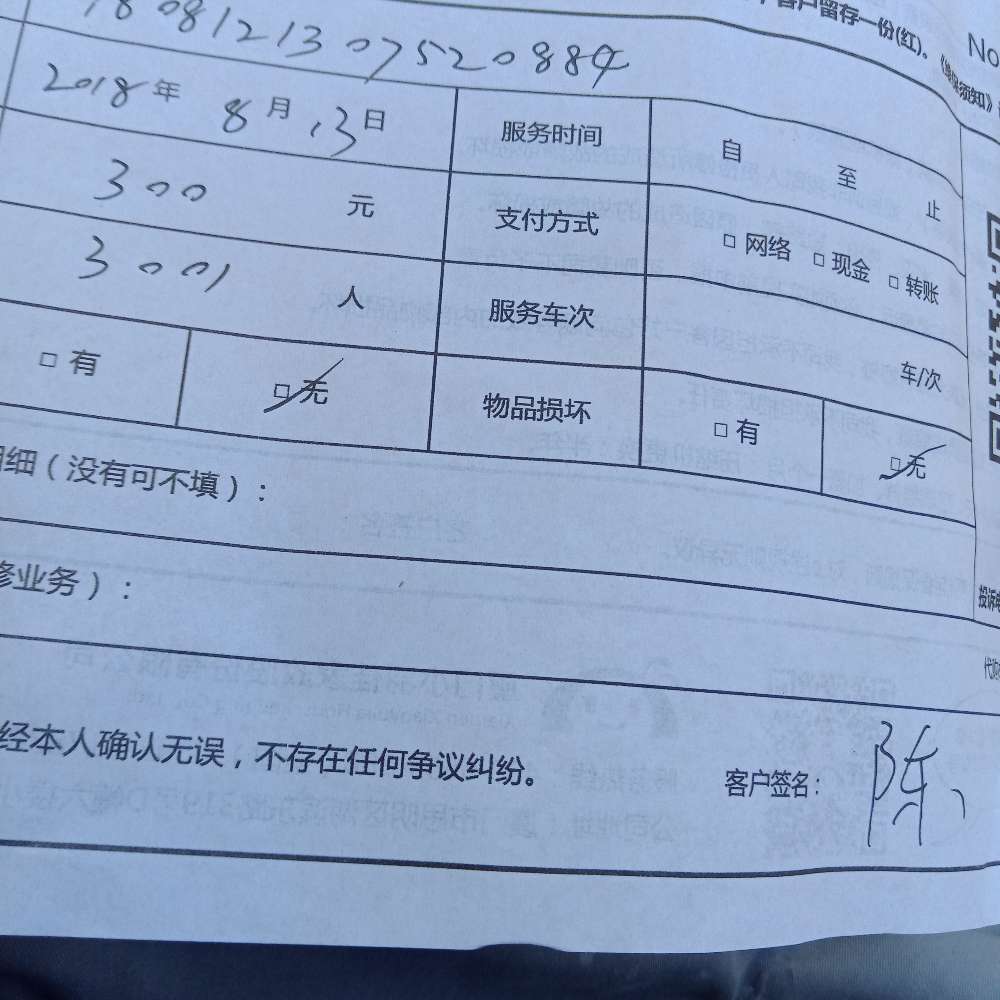 客户留存一份(红)。
No
1808121307520884
2018年 8月 13日 服务时间 自 至 止
300 元 支付方式 □ 网络 □ 现金 □ 转账
3001 人 服务车次 车/次
□ 有 □ 无 物品损坏 □ 有 □ 无
细(没有可不填):
修业务):
经本人确认无误,不存在任何争议纠纷。 客户签名: 陈